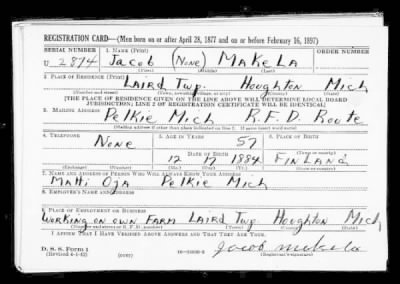 REGISTRATION CARD—(Men born on or after April 28, 1877 and on or before February 16, 1897)
SERIAL NUMBER 1. NAME (Print) ORDER NUMBER
U 2874 Jacob (None) Makela
(First) (Middle) (Last)
2. PLACE OF RESIDENCE (Print)
Laird Twp. Houghton Mich
(Number and street) (Town, township, village, or city) (County) (State)
[THE PLACE OF RESIDENCE GIVEN ON THE LINE ABOVE WILL DETERMINE LOCAL BOARD
JURISDICTION; LINE 2 OF REGISTRATION CERTIFICATE WILL BE IDENTICAL]
3. MAILING ADDRESS
Pelkie Mich R.F.D. Route
(Mailing address if other than place indicated on line 2. If same insert word same)
4. TELEPHONE 5. AGE IN YEARS 6. PLACE OF BIRTH
None 57
DATE OF BIRTH (Town or county)
12 17 1884 FINLAND
(Exchange) (Number) (Mo.) (Day) (Yr.) (State or country)
7. NAME AND ADDRESS OF PERSON WHO WILL ALWAYS KNOW YOUR ADDRESS
Matti Oja Pelkie Mich
8. EMPLOYER'S NAME AND ADDRESS
9. PLACE OF EMPLOYMENT OR BUSINESS
Working on own Farm Laird Twp. Houghton Mich
(Number and street or R. F. D. number) (Town) (County) (State)
I AFFIRM THAT I HAVE VERIFIED ABOVE ANSWERS AND THAT THEY ARE TRUE.
D. S. S. Form 1
(Revised 4-1-42) (over) Jacob Makela
(Registrant's signature)